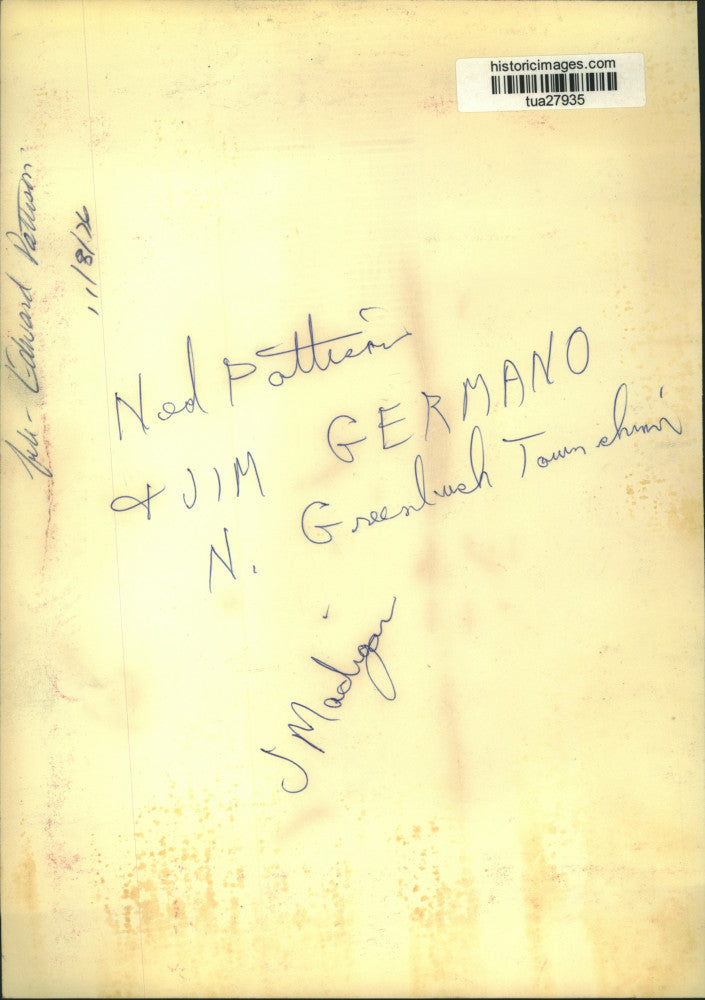 historicimages.com
tua27935
file - Edward Pattison
11/8/76
Ned Pattison
+ JIM GERMANO
N. Greenbush Town chmn
J Madigan